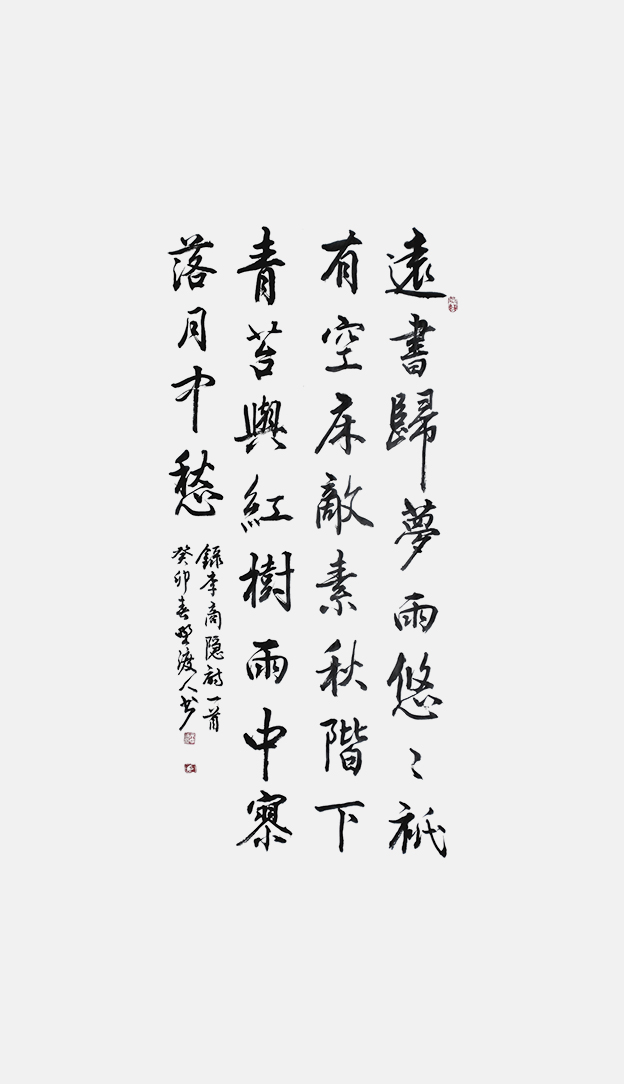 遠書歸夢兩悠〻祇
有空床敵素秋階下
青苔與紅樹雨中寥
落月中愁
錄李商隐詩一首
癸卯春野渡人書